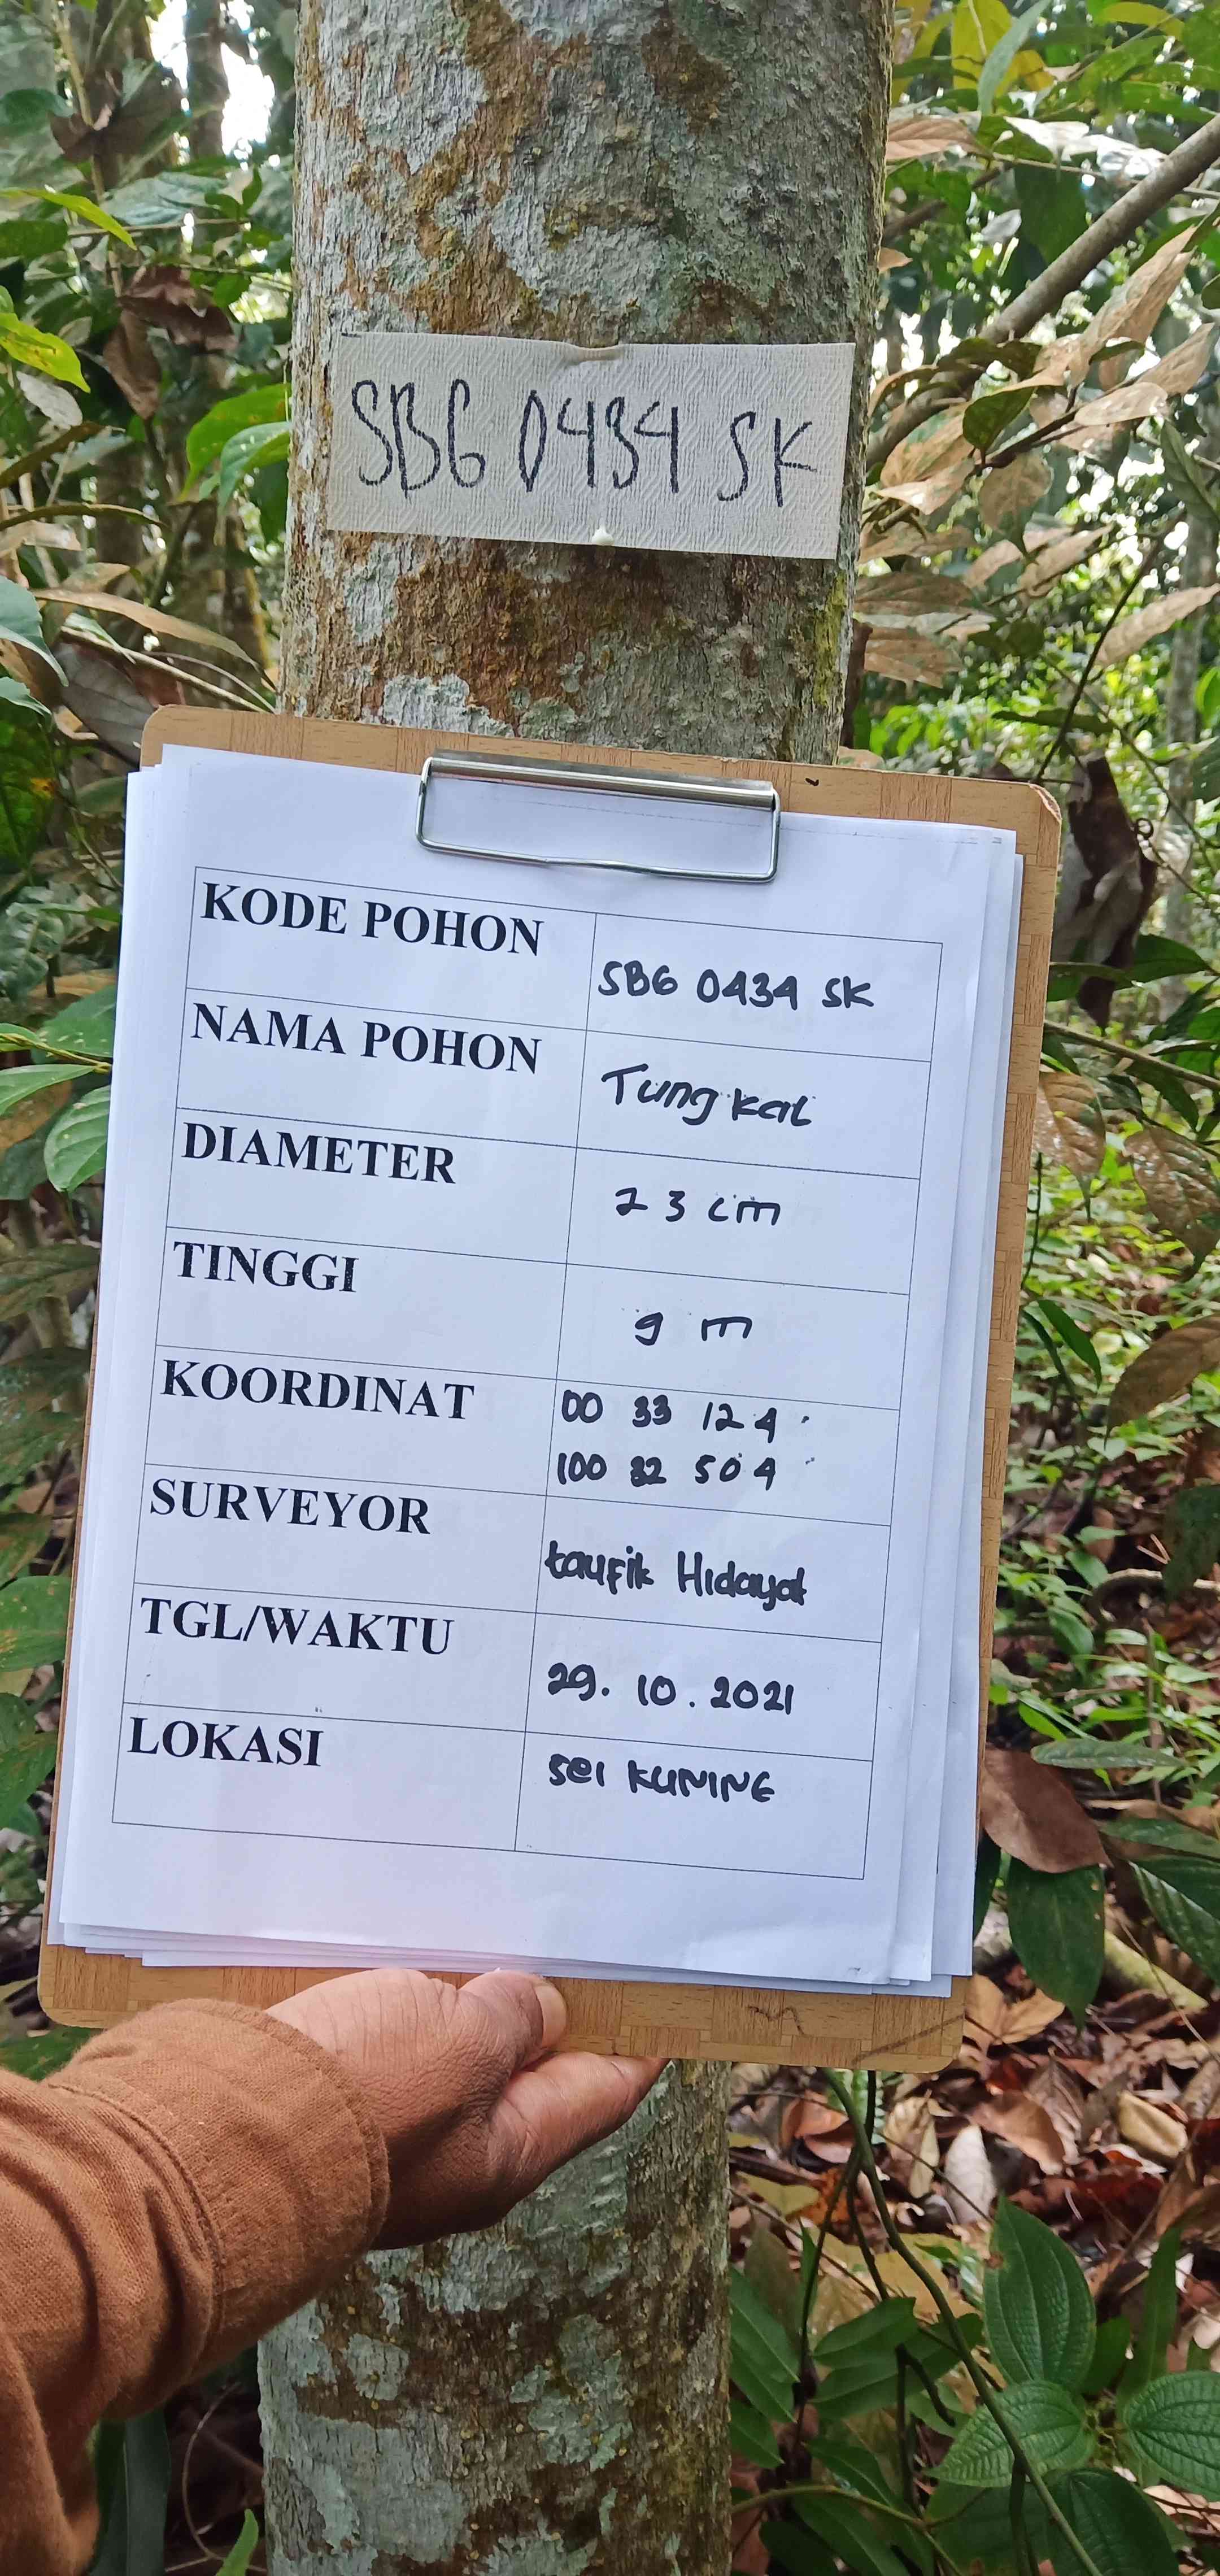 SBG 0434 SK
KODE POHON
SBG 0434 SK
NAMA POHON
Tungkal
DIAMETER
23 cm
TINGGI
9 m
KOORDINAT
00 33 12 4
100 32 50 4
SURVEYOR
taufik Hidayat
TGL/WAKTU
29. 10. 2021
LOKASI
sei KUNING